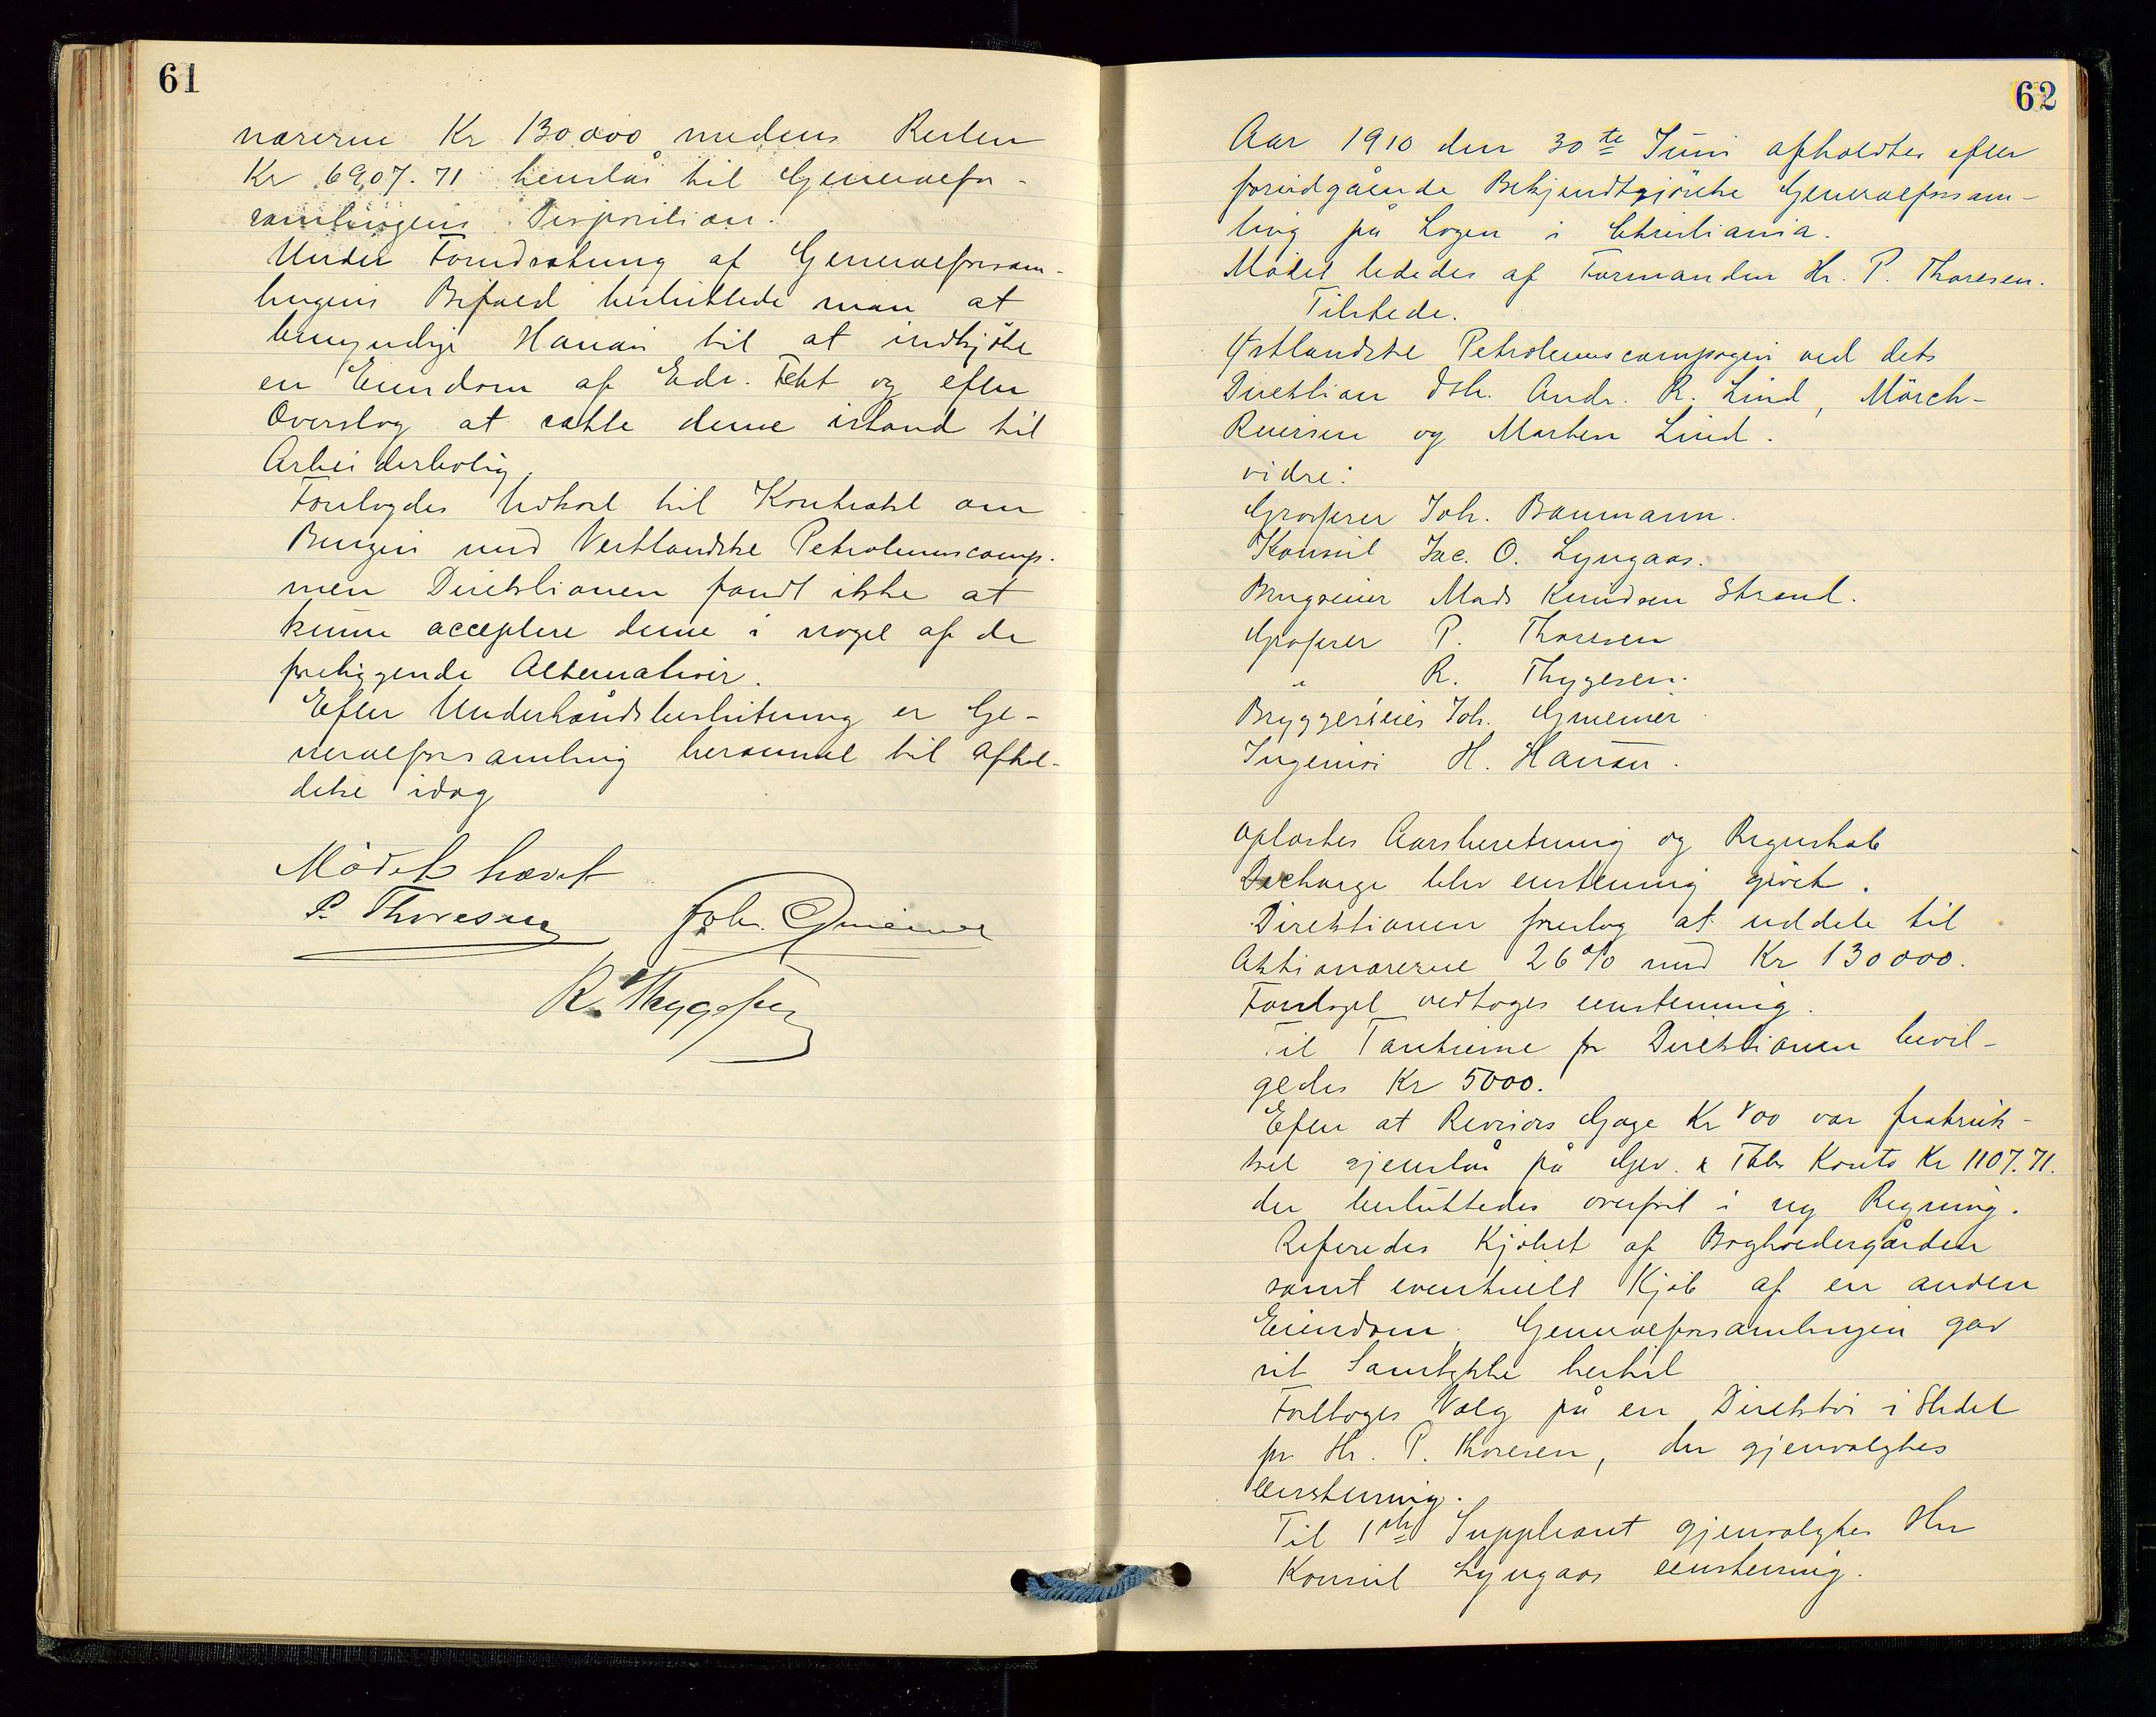 61
nærerne Kr 130000 medens Resten
Kr 6907.71 henstår til Generalfor-
samlingens Disposition.
Under Forudsætning af Generalforsam-
lingens Bifald besluttede man at
bemyndige Hansen til at indkjöbe
en Eiendom af Edv. og efter
Overslag at sætte denne istand til
Arbeiderbolig.
Forelagdes Udkast til Kontrakt om
Benzin med Vestlandske Petroleumscomp.
men Direktionen fandt ikke at
kunne acceptere denne i noget af de
foreliggende Alternativer.
Efter Underhåndsbeslutning er Ge-
neralforsamling berammet til Afhol-
delse idag
Mödet hævet
P. Thoresen Joh. Gmeiner
R. Thygesen
62
Aar 1910 den 30te Juni afholdtes efter
forudgående Bekjendtgjörelse Generalforsam-
ling på Logen i Christiania.
Mödet lededes af Formanden Hr. P. Thoresen.
Tilstede.
Östlandske Petroleumscompagni ved dets
Direktion dHr. Andr. R. Lind, Mörch-
Reiersen og Morten Lind.
vidre:
Grosserer Joh. Baumann.
Konsul Jac. O. Lyngaas.
Brugseier Mads Knudsen Strand.
Grosserer P. Thoresen
" R. Thygesen.
Bryggerieier Joh. Gmeiner
Ingeniör H. Hansen.
Oplæstes Aarsberetning og Regnskab
Decharge blev enstemmig givet.
Direktionen foreslog at uddele til
Aktionærerne 26% med Kr 130000.
Forslaget vedtoges eenstemmig.
Til Tantieme for Direktionen bevil-
gedes Kr 5000.
Efter at Revisors Gage Kr 800 var fratruk-
ket gjenstår på Gev. & Tabs Konto Kr 1107.71.
der besluttedes overfört i ny Regning.
Refereredes Kjöbet af Bogholdergården
samt eventuelt Kjöb af en anden
Eiendom. Generalforsamlingen gav
sit Samtykke hertil
Foretoges Valg på en Direktör i Stedet
for Hr. P. Thoresen, der gjenvalgtes
eenstemmig.
Til 1ste Suppleant gjenvalgtes Hr
Konsul Lyngaas eenstemmig.